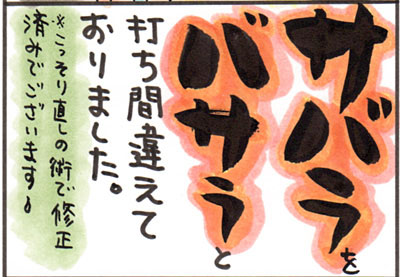 サバラを
バサラと
打ち間違えて
おりました。
※こっそり直しの術で修正
済みでございます♪